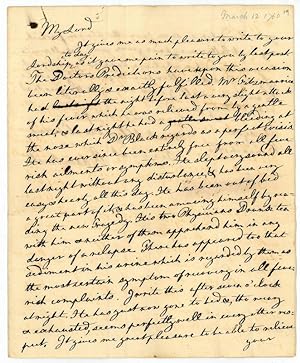 March 12 1760
My Lord
It gives me as much pleasure to write to your
Lordship as it gave me pain to write to you by last post.
to day
The Doctors Predictions have upon this occasion
been literally & exactly fulfilled. Mr Fitzmaurice
had the night before last a very slight attack
of his fever which he was relieved from by a gentle
sweat; & last night he had a bleeding at
the nose which Dr Black regards as a perfect crisis.
He has ever since been entirely free from all feve-
rish ailments or symptoms. He slept very sound all
last night without any disturbance, & has been very
easy & hearty all this day. He has been out of bed
a great part of it, & has been amusing himself by rea-
ding the new Tragedy. His two Physicians Dined to day
with him & neither of them apprehend him in any
danger of a relapse. There has appeared too that
sediment in his urine which is regarded by them as
the most certain symptom of recovery in all feve-
rish complaints. I write this after seven o'clock
at night. He has just now gone to bed &, tho weary
& exhausted, seems perfectly well in every other res-
pect. It gives me great pleasure to be able to relieve
your